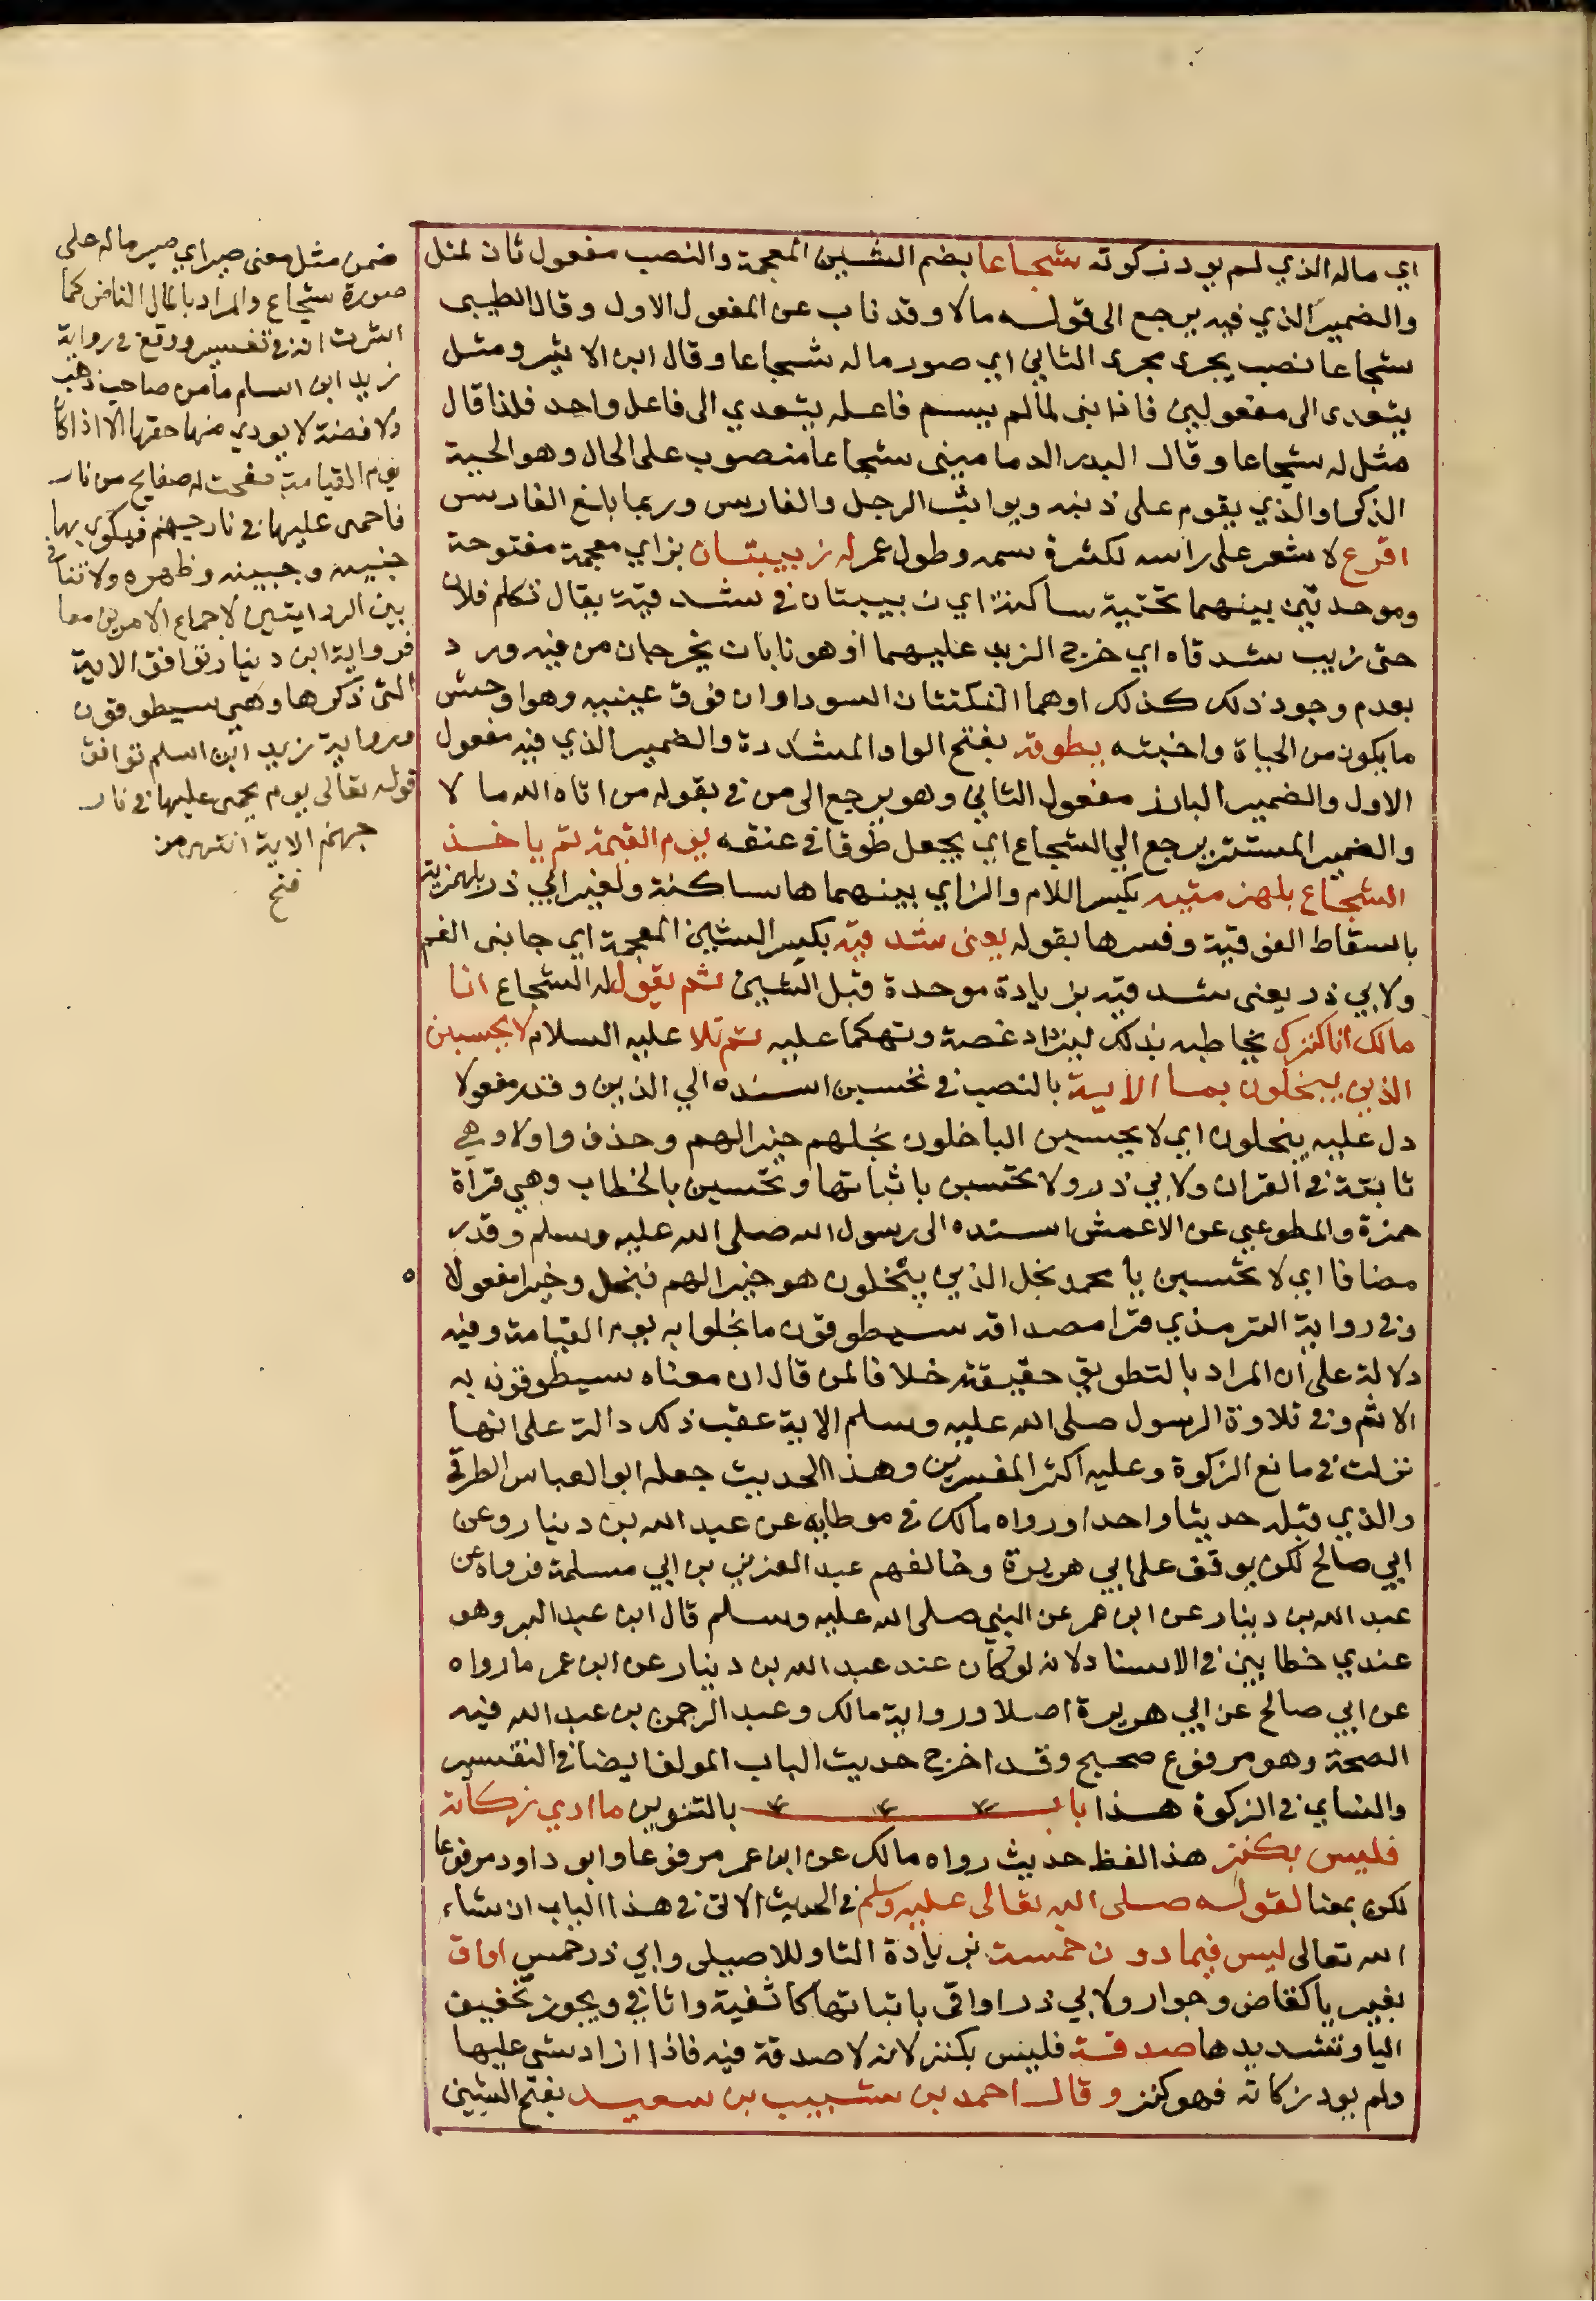 اي ماله الذي لم يود زكوته شجاعا بضم الشين المعجمة والنصب مفعول ثان لمثل
والضمير الذي فيه يرجع الى قوله مالا وقد ناب عن المفعول الاول وقال الطيبى
شجاعا نصب يجرى مجرى الثاني اي صور ماله شجاعا وقال ابن الاثير ومثل
يتعدى الى مفعولين فاذا بنى لما لم يسم فاعله يتعدي الى فاعل واحد فلذا قال
مثل له شجاعا وقال البدر الدمامينى شجاعا منصوب على الحال وهو الحية
الذكر او الذي يقوم على ذنبه ويواثب الرجل والفارس وربما بلغ الفارس
اقرع لا شعر على راسه لكثرة سمه وطول عمر له زبيبتان بزاي معجمة مفتوحة
وموحدتين بينهما تحتية ساكنة اي زبيبتان في شدقيه يقال تكلم فلان
حتى زبب شدقاه اي خرج الزبد عليهما او هو نابان يخرجان من فيه ورد
بعدم وجود ذلك كذلك او هما النكتتان السوداوان فوق عينيه وهو اوحش
ما يكون من الحياة واخبثه يطوقه بفتح الواو المشددة والضمير الذي فيه مفعول
الاول والضمير البارز مفعول الثاني وهو يرجع الى من في بقوله من اتاه الله مالا
والضمير المستتر يرجع الي الشجاع اي يجعل طوقا في عنقه يوم القيمة ثم ياخذ
الشجاع بلهزمتيه بكسر اللام والزاي بينهما ها ساكنة ولغير ابي ذر بلهزميه
باسقاط الفوقية وفسرها بقوله يعنى شدقيه بكسر الشين المعجمة اي جانبى الفم
ولابي ذر يعنى بشدقيه بزيادة موحدة قبل الشين ثم يقول له الشجاع انا
مالك انا كنزك يخاطبه بذلك ليزداد غصة وتهكما عليه ثم تلا عليه السلام لا يحسبن
الذين يبخلون بما الاية بالنصب في نحسبن اسنده الي الذين وقدر مفعولا
دل عليه يبخلون اي لا يحسبن الباخلون بخلهم خيرا لهم وحذف واو ولا وهي
ثابتة في القران ولابي ذر ولا تحسبن باثباتها وتحسبن بالخطاب وهي قرأة
حمزة والمطوعي عن الاعمش اسنده الى رسول الله صلى الله عليه وسلم وقدر
مضافا اي لا تحسبن يا محمد بخل الذين يبخلون هو خيرا لهم فبخل وخيرا مفعولا ه
وفي رواية الترمذي قرا مصداقه سيطوقون ما بخلوا به يوم القيامة وفيه
دلالة على ان المراد بالتطويق حقيقته خلافا لمن قال ان معناه سيطوقون به
الاثم وفي تلاوة الرسول صلى الله عليه وسلم الاية عقب ذلك دالة على انها
نزلت في مانع الزكوة وعليه اكثر المفسرين وهذا الحديث جعله ابو العباس الطرقي
والذي قبله حديثا واحدا ورواه مالك في موطايه عن عبد الله بن دينار وعن
ابي صالح لكن يوقف على ابي هريرة وخالفهم عبد العزيز بن ابي مسلمة فرواه عن
عبد الله بن دينار عن ابن عمر عن النبي صلى الله عليه وسلم قال ابن عبد البر وهو
عندي خطا بين في الاسناد لانه لو كان عند عبد الله بن دينار عن ابن عمر ما رواه
عن ابي صالح عن ابي هريرة اصلا ورواية مالك وعبد الرحمن بن عبد الله فيه
الصحة وهو مرفوع صحيح وقد اخرج حديث الباب المولف ايضا في التفسير
والنساي في الزكوة هذا باب بالتنوين ما ادي زكاته
فليس بكنز هذ الفظ حديث رواه مالك عن ابن عمر مرفوعا وابو داود مرفوعا
لكن بمعنا لقوله صلى الله تعالى عليه وسلم في الحديث الاتى في هذا الباب ان شاء
الله تعالى ليس فيما دون خمسة بزيادة التا وللاصيلى وابي ذر خمس اواق
بغير يا كقاض وجوار ولابي ذر اواقى باثباتها كاثفية واثافي ويجوز تخفيف
اليا وتشديدها صدقة فليس بكنز لانه لا صدقة فيه فاذا ازاد شي عليها
ولم يود زكاته فهو كنز وقال احمد بن شبيب بن سعيد بفتح الشين
ضمن مثل معنى صير اي صير ماله على
صورة شجاع والمراد بالمال الناض كما
اشرت اليه في تفسير ووقع في رواية
زيد ابن اسلم ما من صاحب ذهب
ولا فضة لا يودي منها حقها الا اذا كان
يوم القيامة صفحت له صفايح من نار
فاحمى عليها في نار جهنم فيكوى بها
جنبيه وجبينه وظهره ولا تنافي
بين الروايتين لاجماع الامرين معا
فرواية ابن دينار توافق الاية
التى ذكرها وهي سيطوقون
ورواية زيد ابن اسلم توافق
قوله تعالى يوم يحمى عليها في نار
جهنم الاية انتهى من
فتح